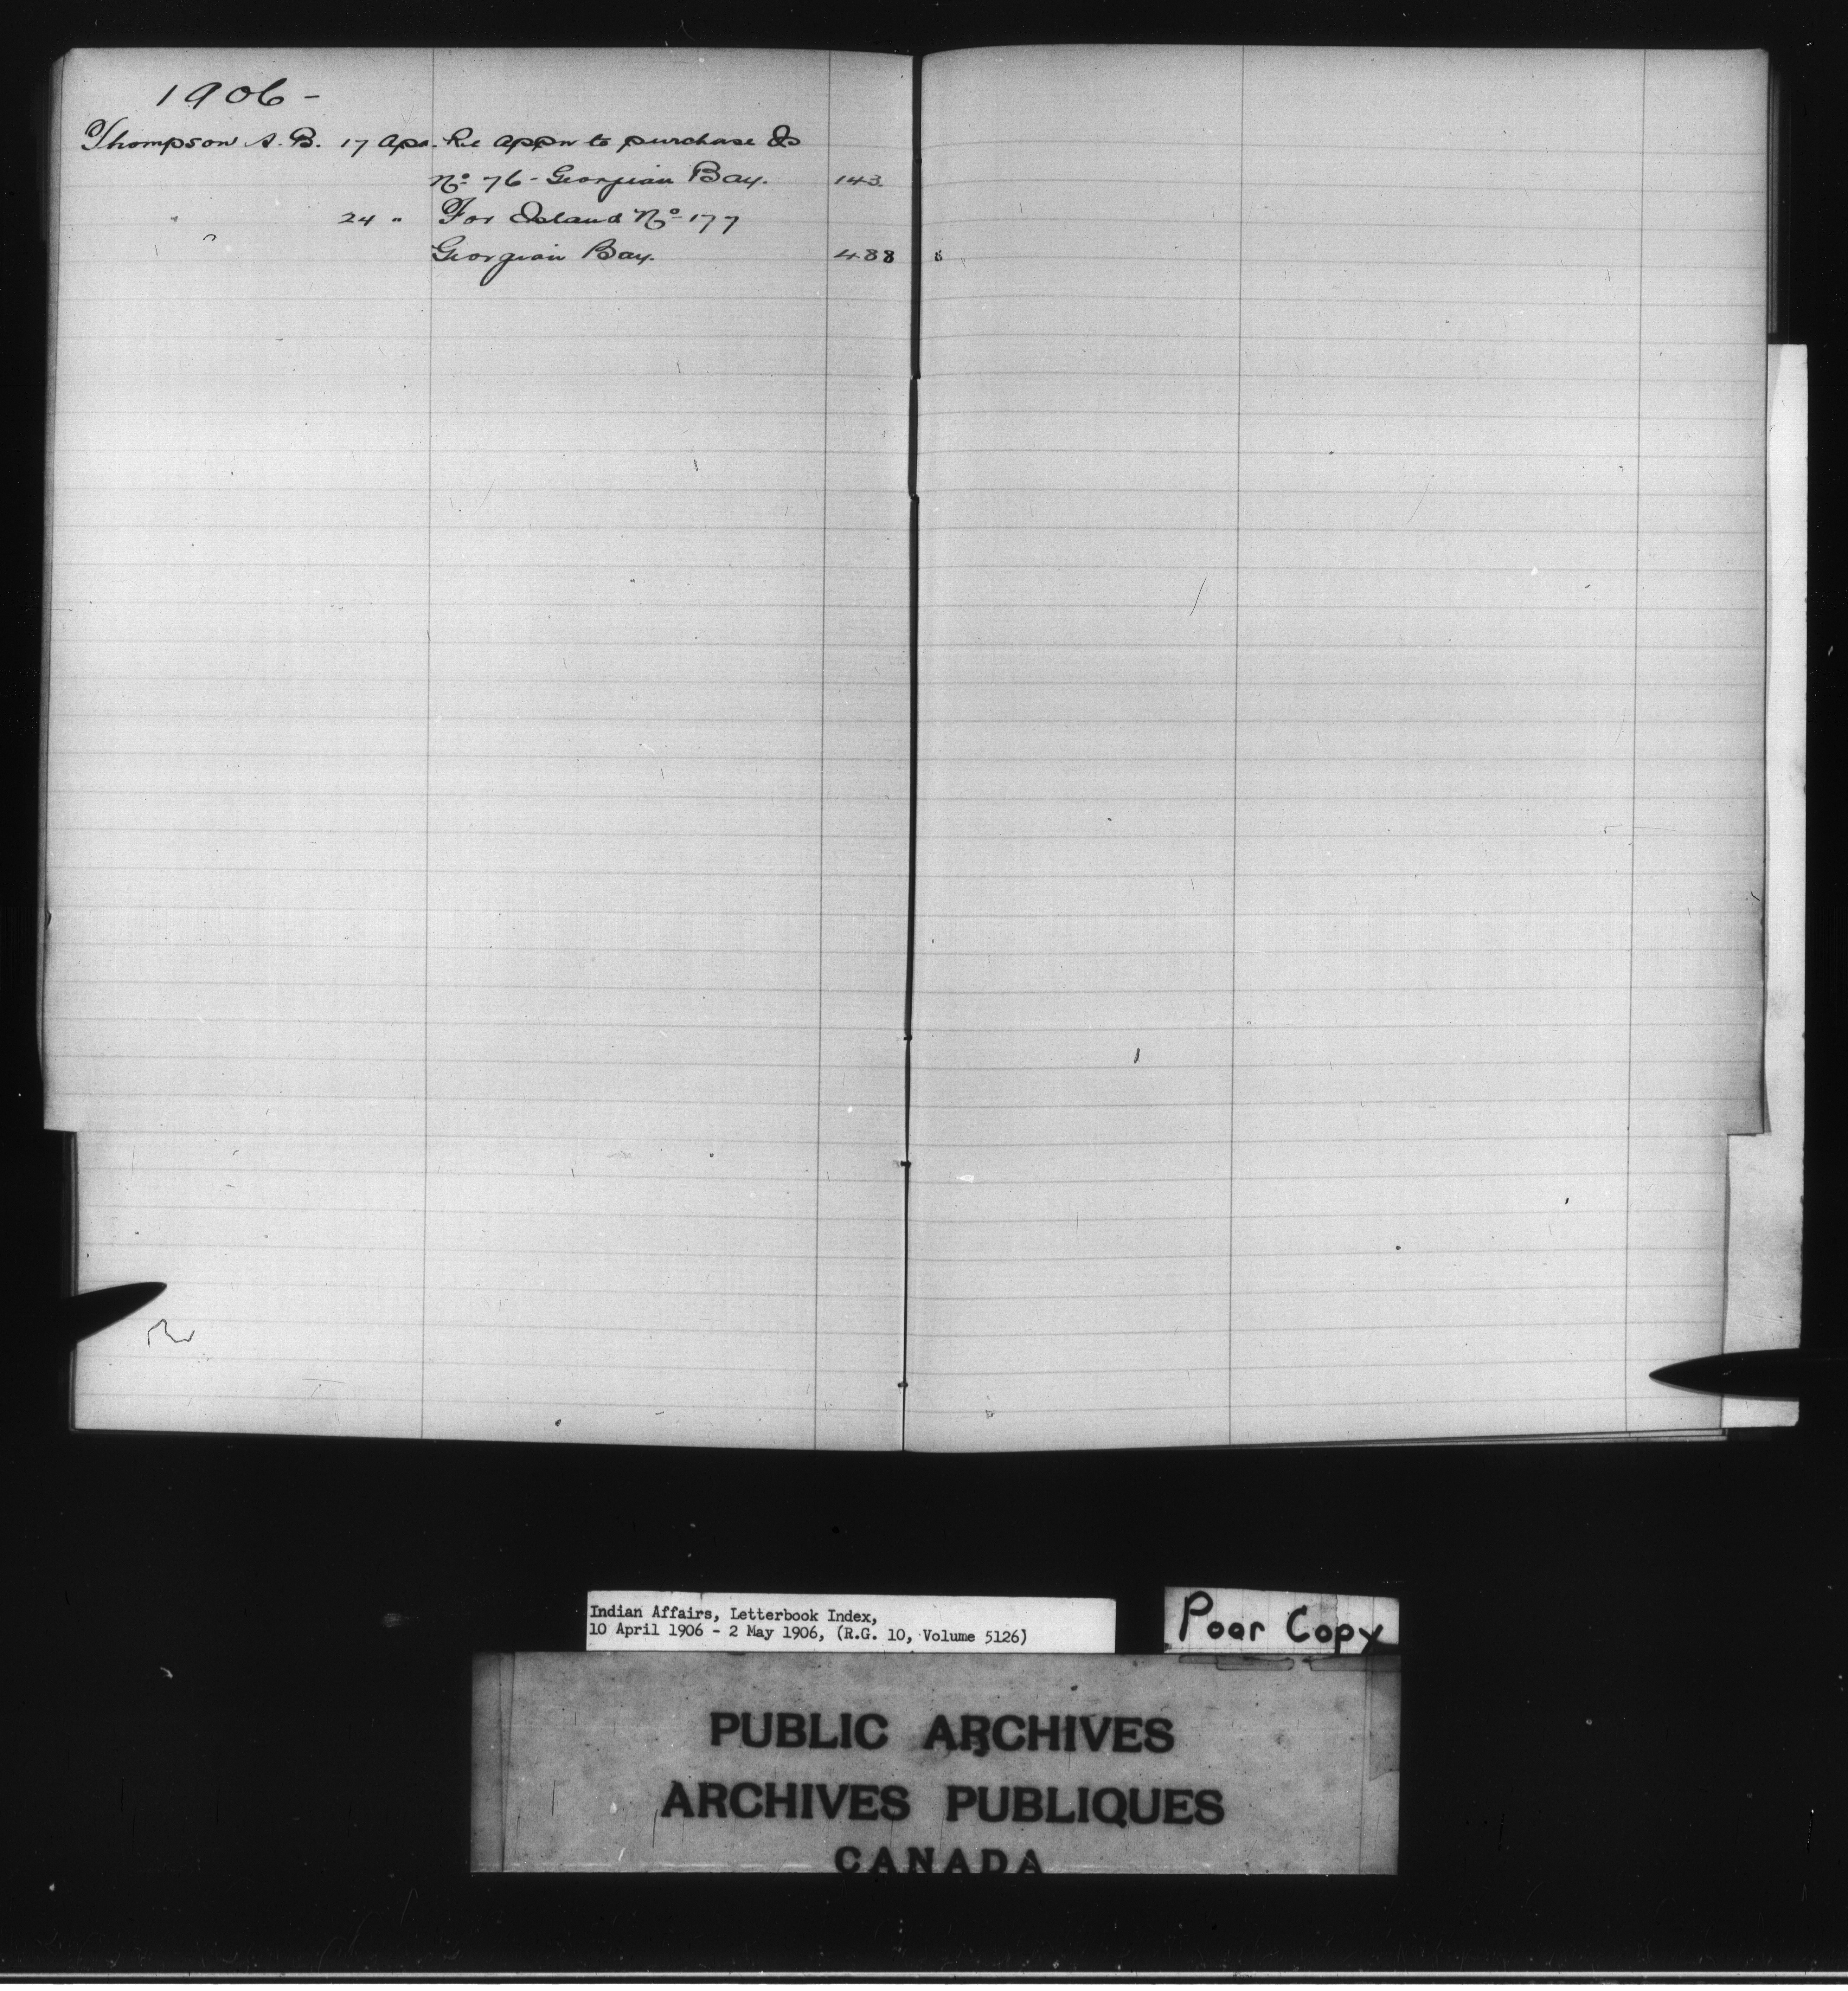 1906 -
Thompson A. B. 17 Apr. Re Appn to purchase Is
No 76 - Georgian Bay. 143
" 24 " For Island No 177
Georgian Bay. 488
Indian Affairs, Letterbook Index,
10 April 1906 - 2 May 1906, (R.G. 10, Volume 5126)
Poor Copy
PUBLIC ARCHIVES
ARCHIVES PUBLIQUES
CANADA